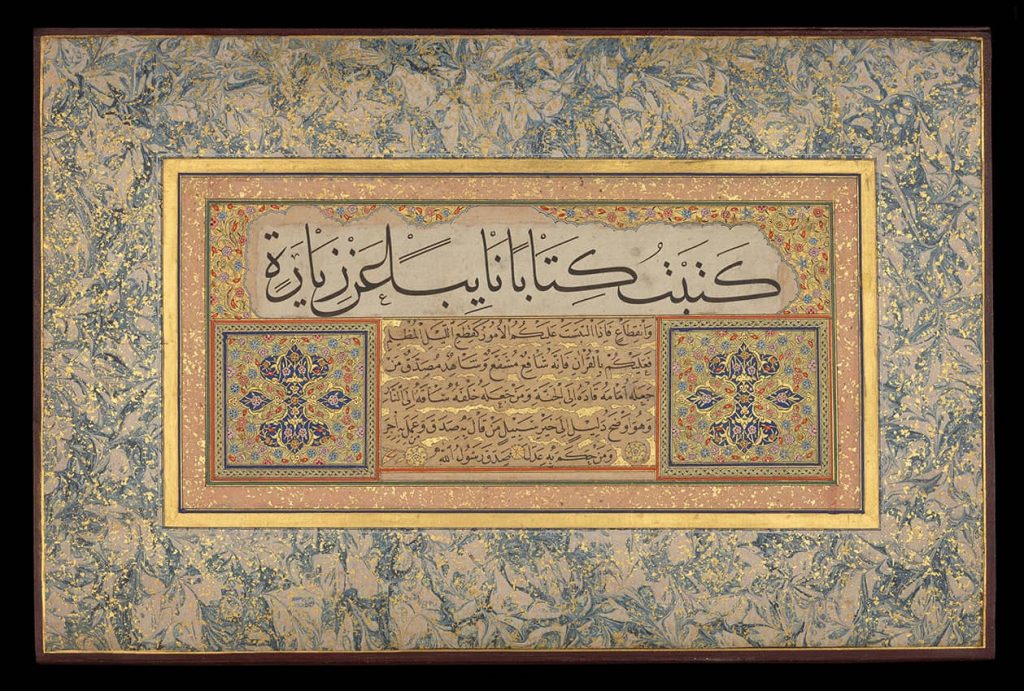 كَتَبْتُ كِتَابًا نَايِبًا عَنْ زِيَارَةٍ
وانقطاع فاذا التبست عليكم الامور كقطع الليل المظلم
فعليكم بالقران فانه شافع مشفع وشاهد مصدق من
جعله امامه قاده الى الجنة ومن جعله خلفه ساقه الى النار
وهو اوضح دليل الى خير سبيل من قال به صدق وعمل به اجر
ومن حكم به عدل صدق رسول الله